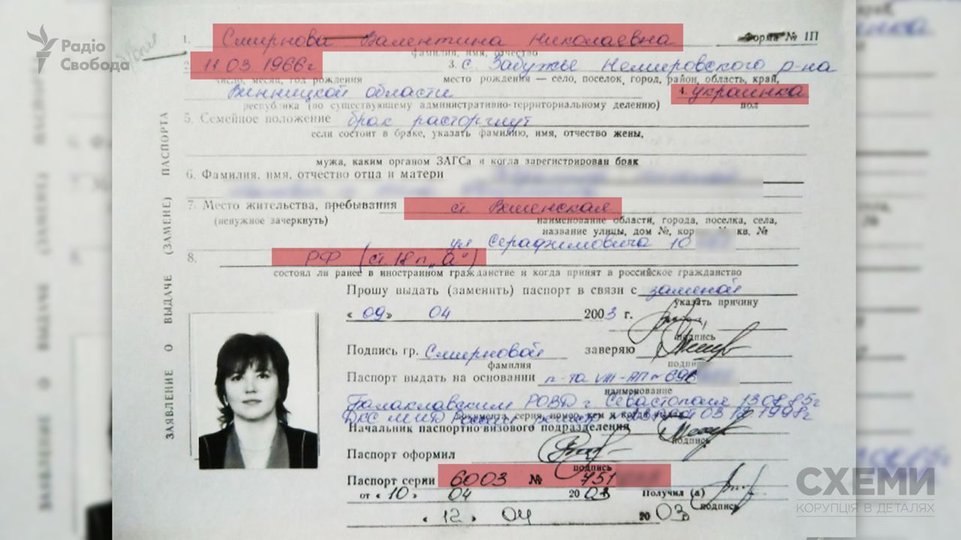 Радіо
Свобода
1. Смирнова Валентина Николаевна Форма № 1П
фамилия, имя, отчество
2. 11.03.1966г 3. с. Забужье Немировского р-на
число, месяц, год рождения место рождения — село, поселок, город, район, область, край,
Винницкой области 4. украинка
республика (по существующему административно-территориальному делению) пол
5. Семейное положение брак расторгнут
если состоит в браке, указать фамилию, имя, отчество жены,
мужа, каким органом ЗАГСа и когда зарегистрирован брак
6. Фамилия, имя, отчество отца и матери
7. Место жительства, пребывания ст. Вешенская
(ненужное зачеркнуть) наименование области, города, поселка, села,
название улицы, дом №, кор № кв. №
ул Серафимовича 10
8. РФ (ст. 18 п. "а")
состоял ли ранее в иностранном гражданстве и когда принят в российское гражданство
Прошу выдать (заменить) паспорт в связи с заменой
указать причину
« 09 » 04 2003 г.
подпись
Подпись гр. Смирновой заверяю
фамилия подпись
Паспорт выдать на основании п-та VIII-АП № 696
наименование
Балаклавским РОВД г Севастополя 13.08.85г
документа, серия, номер, кем и когда выдан
03.12.1998г
Начальник паспортно-визового подразделения
подпись
Паспорт оформил
подпись
Паспорт серии 6003 № 751
от « 10 » 04 2003 Получил (а)
подпись
« 12 » 04 2003
ЗАЯВЛЕНИЕ О ВЫДАЧЕ (ЗАМЕНЕ) ПАСПОРТА
СХЕМИ
КОРУПЦІЯ В ДЕТАЛЯХ